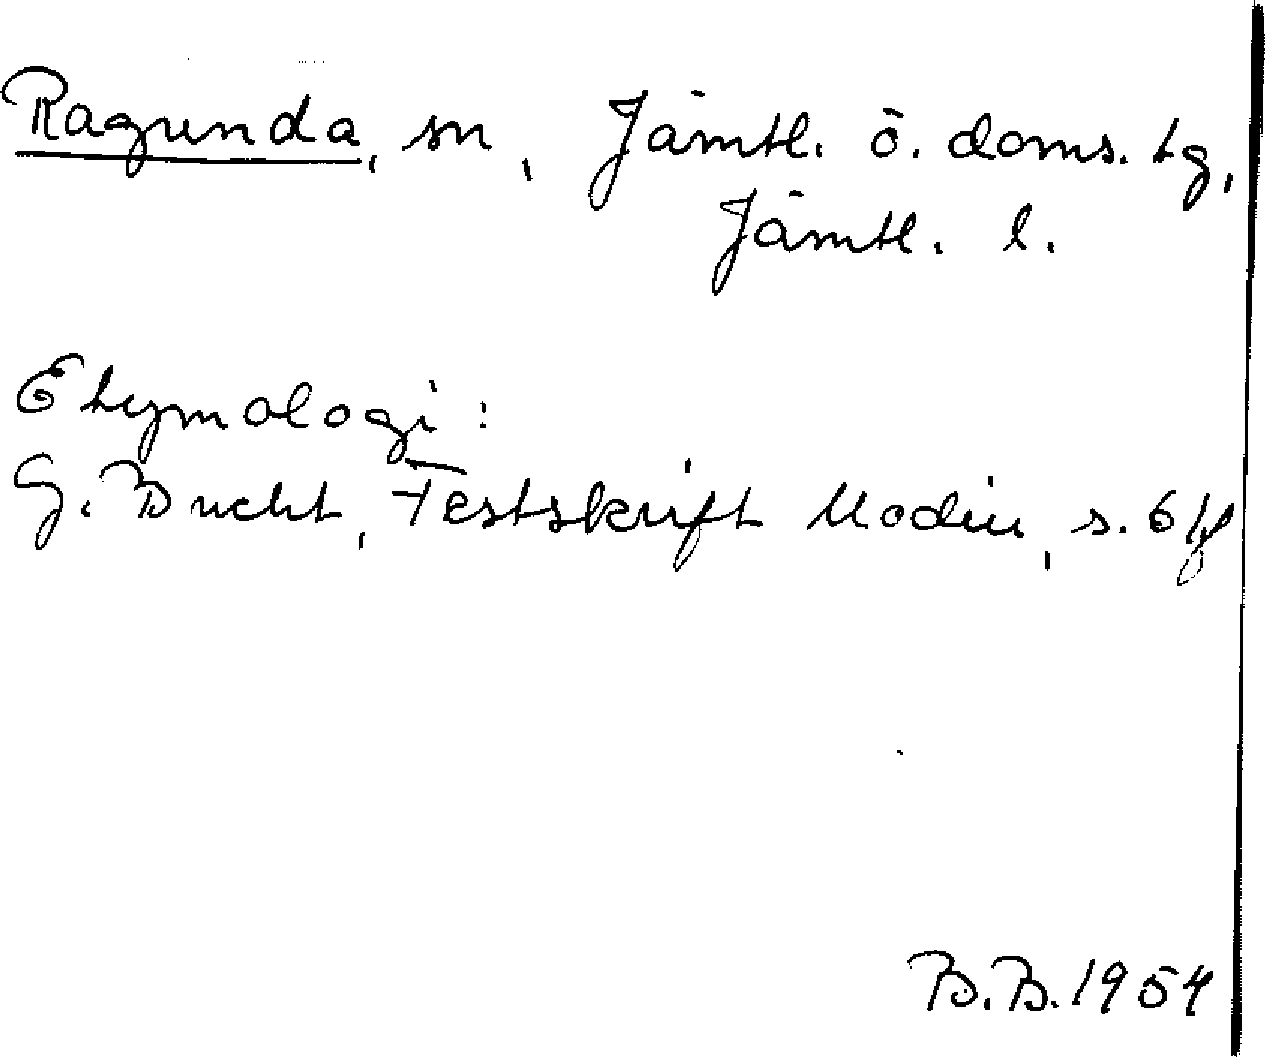 Ragunda, sn, Jämtl. ö. doms. tg,
Jämtl. l.
Etymologi:
G. Bucht, Festskrift Modin, s. 6 ff
B.B. 1954